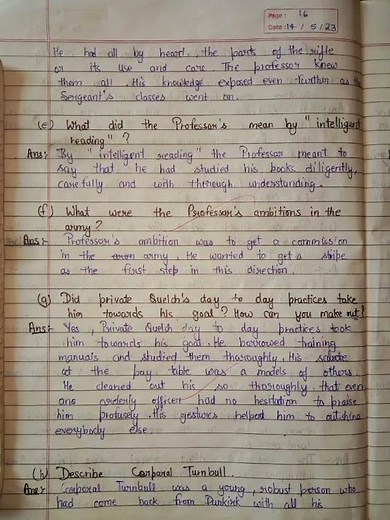 Page: 16
Date: 14 / 5 / 23
He had all by heard the parts of the rifle
or its use and care The professor knew
them all. His knowledge exposed even further as the
Sergeant's classes went on.
(e) What did the Professor's mean by "intelligent
reading"?
Ans:- By "intelligent reading" the Professor meant to
say that he had studied his books diligently,
carefully and with thorough understanding.
(f) What were the Professor's ambitions in the
army?
Ans:- Professor's ambition was to get a commission
in the army. He wanted to get a stripe
as the first step in this direction.
(g) Did private Quelch's day to day practices take
him towards his goal? How can you make out?
Ans:- Yes, Private Quelch day to day practices took
him towards his goal. He borrowed training
manuals and studied them thoroughly. His salute
at the pay table was a models of others.
He cleaned out his so thoroughly that even
and orderly officer had no hesitation to praise
him profusely. His gestures helped him to outshine
everybody else.
(h) Describe Corporal Turnbull.
Ans:- Corporal Turnbull was a young, robust person who
had come back from Dunkirk with all his